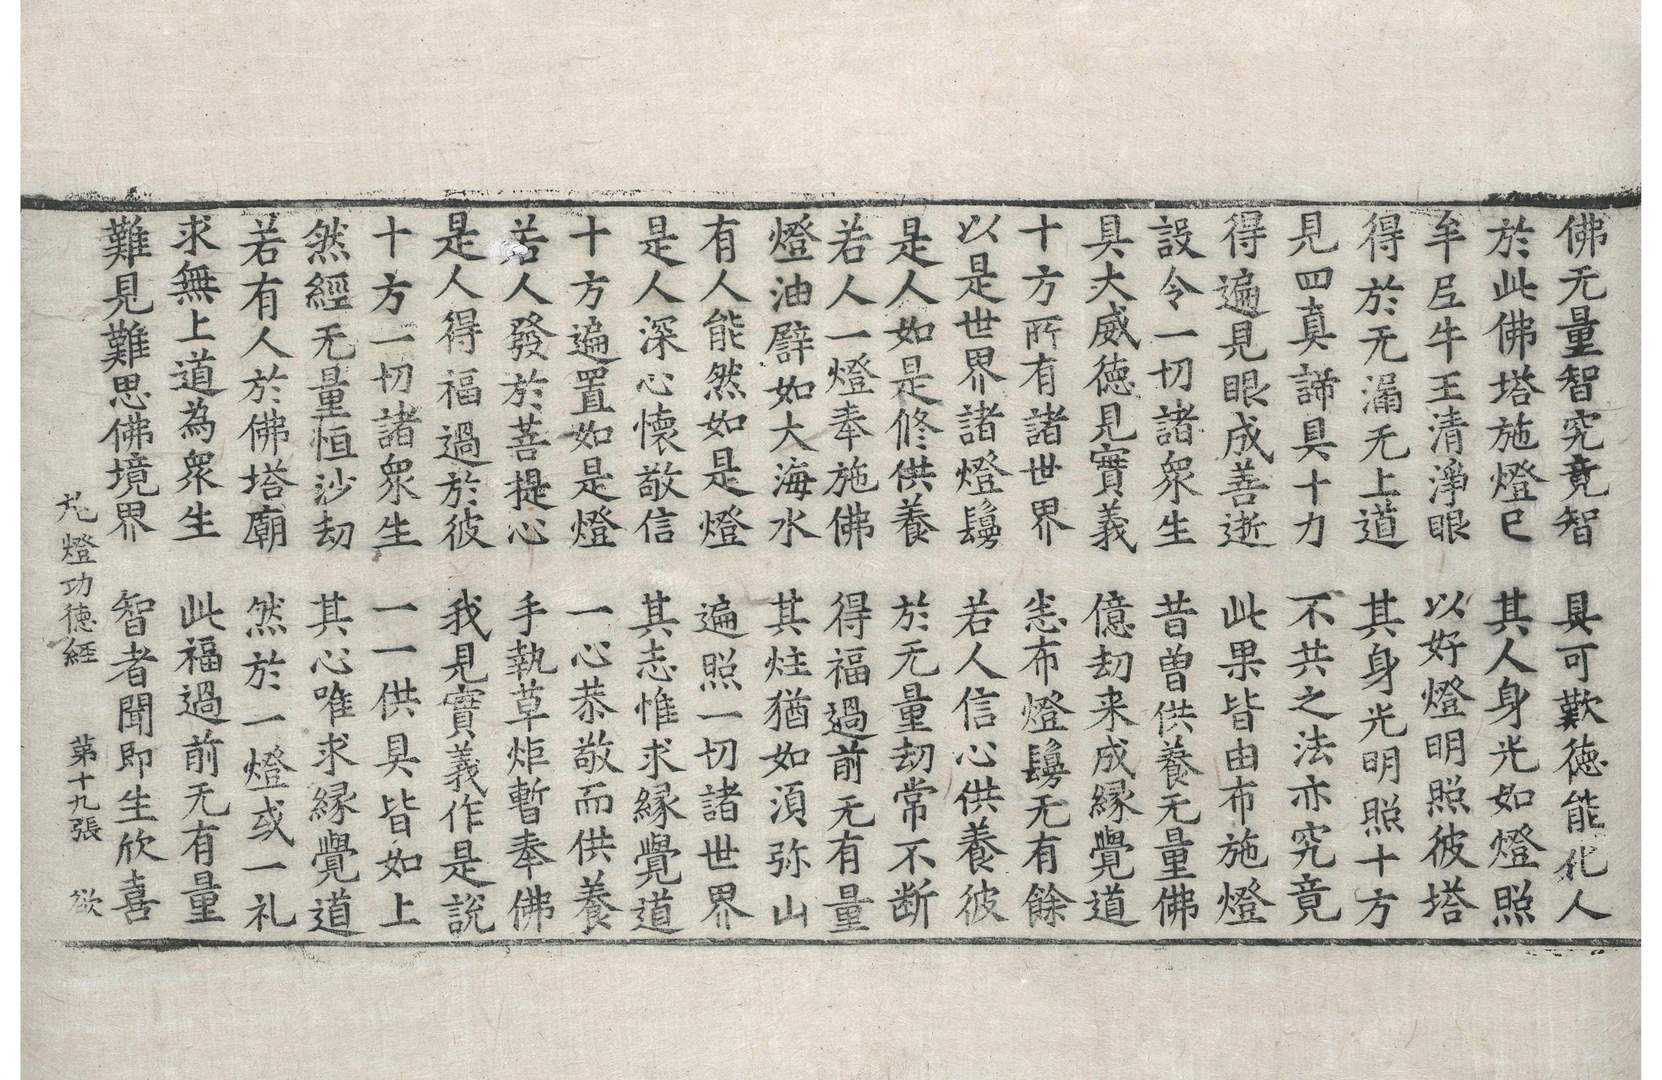 佛无量智究竟智　具可歎德能化人
於此佛塔施燈已　其人身光如燈照
牟尼牛王清淨眼　以好燈明照彼塔
得於无漏无上道　其身光明照十方
見四真諦具十力　不共之法亦究竟
得遍見眼成善逝　此果皆由布施燈
設令一切諸衆生　昔曾供養无量佛
具大威德見實義　億劫来成緣覺道
十方所有諸世界　恙布燈鬘无有餘
以是世界諸燈鬘　若人信心供養彼
是人如是修供養　於无量劫常不断
若人一燈奉施佛　得福過前无有量
燈油譬如大海水　其炷猶如湏弥山
有人能然如是燈　遍照一切諸世界
是人深心懷敬信　其志惟求緣覺道
十方遍置如是燈　一心恭敬而供養
若人發於菩提心　手執草炬暫奉佛
是人得福過於彼　我見實義作是説
十方一切諸衆生　一一供具皆如上
然經无量恒沙劫　其心唯求緣覺道
若有人於佛塔廟　然於一燈或一礼
求無上道為衆生　此福過前无有量
難見難思佛境界　智者聞即生欣喜
燈功德經　第十九張　欲